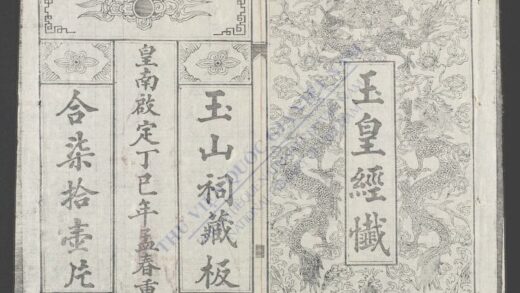 玉皇經懺
玉山祠藏板
皇南啟定丁巳年孟春重
合柒拾壹片
THƯ VIỆN QUỐC GIA VIỆT NAM